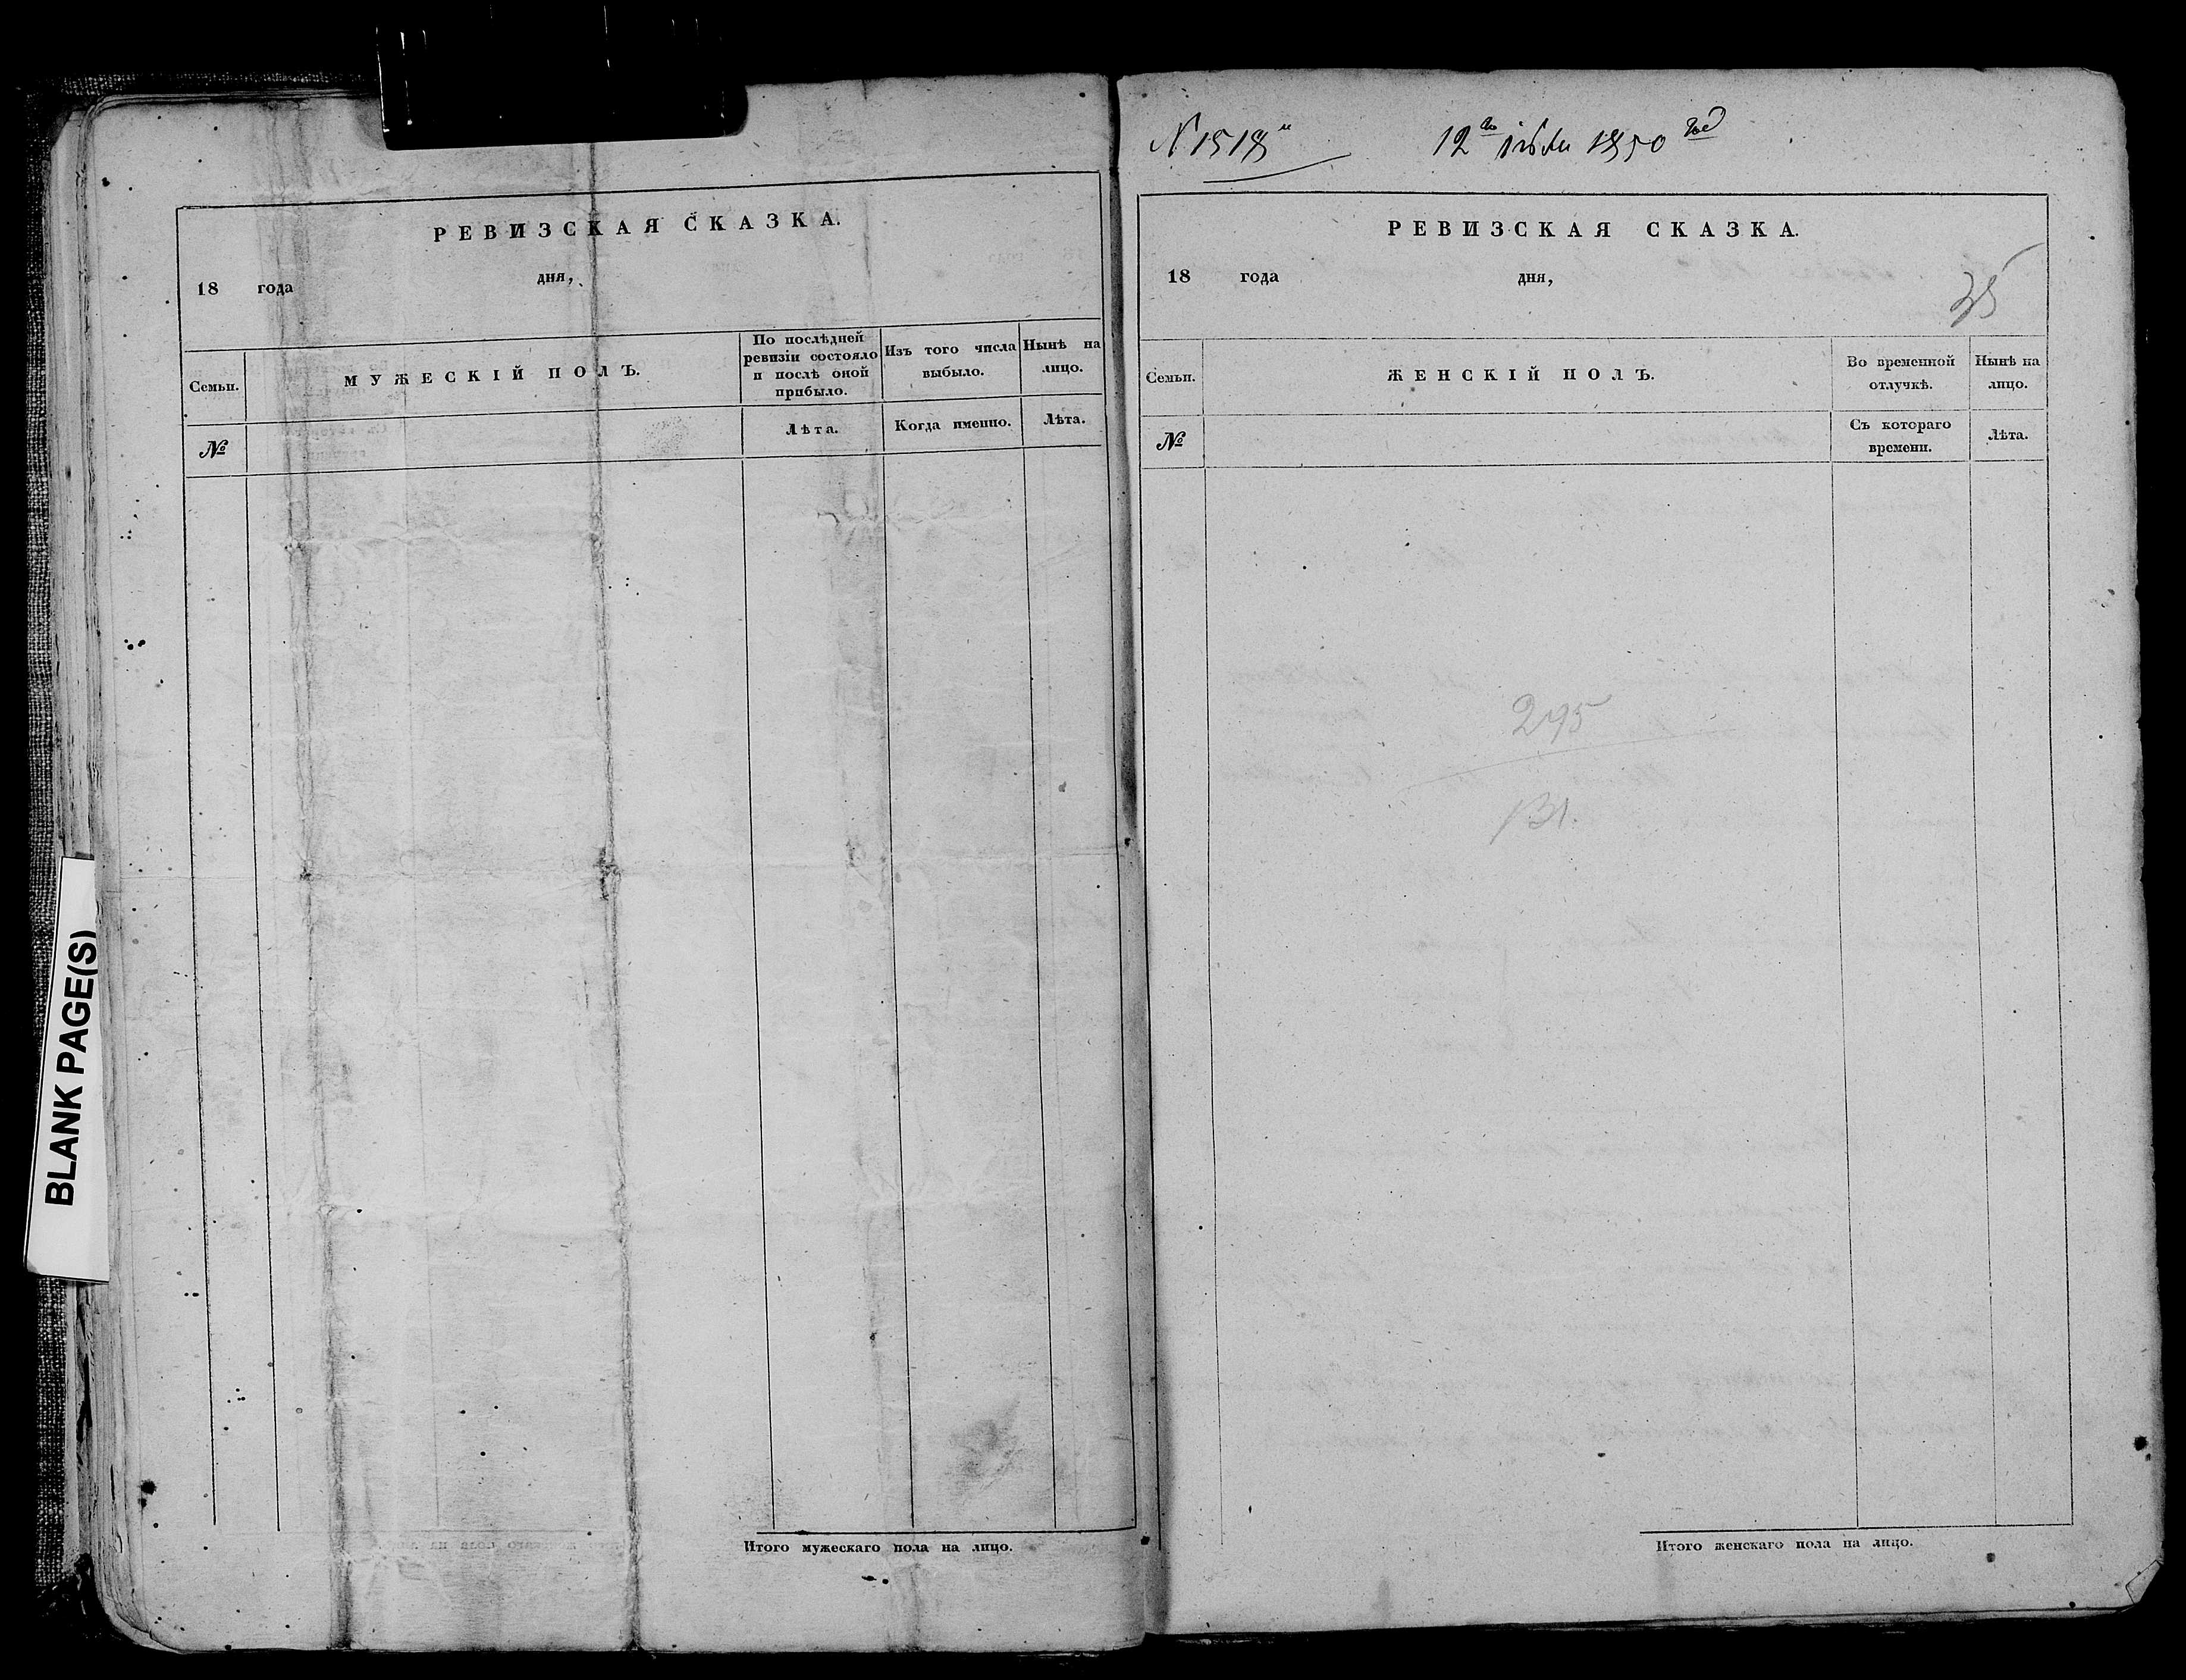 РЕВИЗСКАЯ СКАЗКА.
18 года дня,
Семьи.
МУЖЕСКІЙ ПОЛЪ.
По послѣдней
ревизіи состояло
и послѣ оной
прибыло.
Изъ того числа
выбыло.
Нынѣ на
лицо.
№
Лѣта.
Когда именно.
Лѣта.
Итого мужескаго пола на лицо.
BLANK PAGE(S)
N 1518
12го 1850
РЕВИЗСКАЯ СКАЗКА.
18 года дня,
35
Семьи.
ЖЕНСКІЙ ПОЛЪ.
Во временной
отлучкѣ.
Нынѣ на
лицо.
№
Съ котораго
времени.
Лѣта.
295
131.
Итого женскаго пола на лицо.